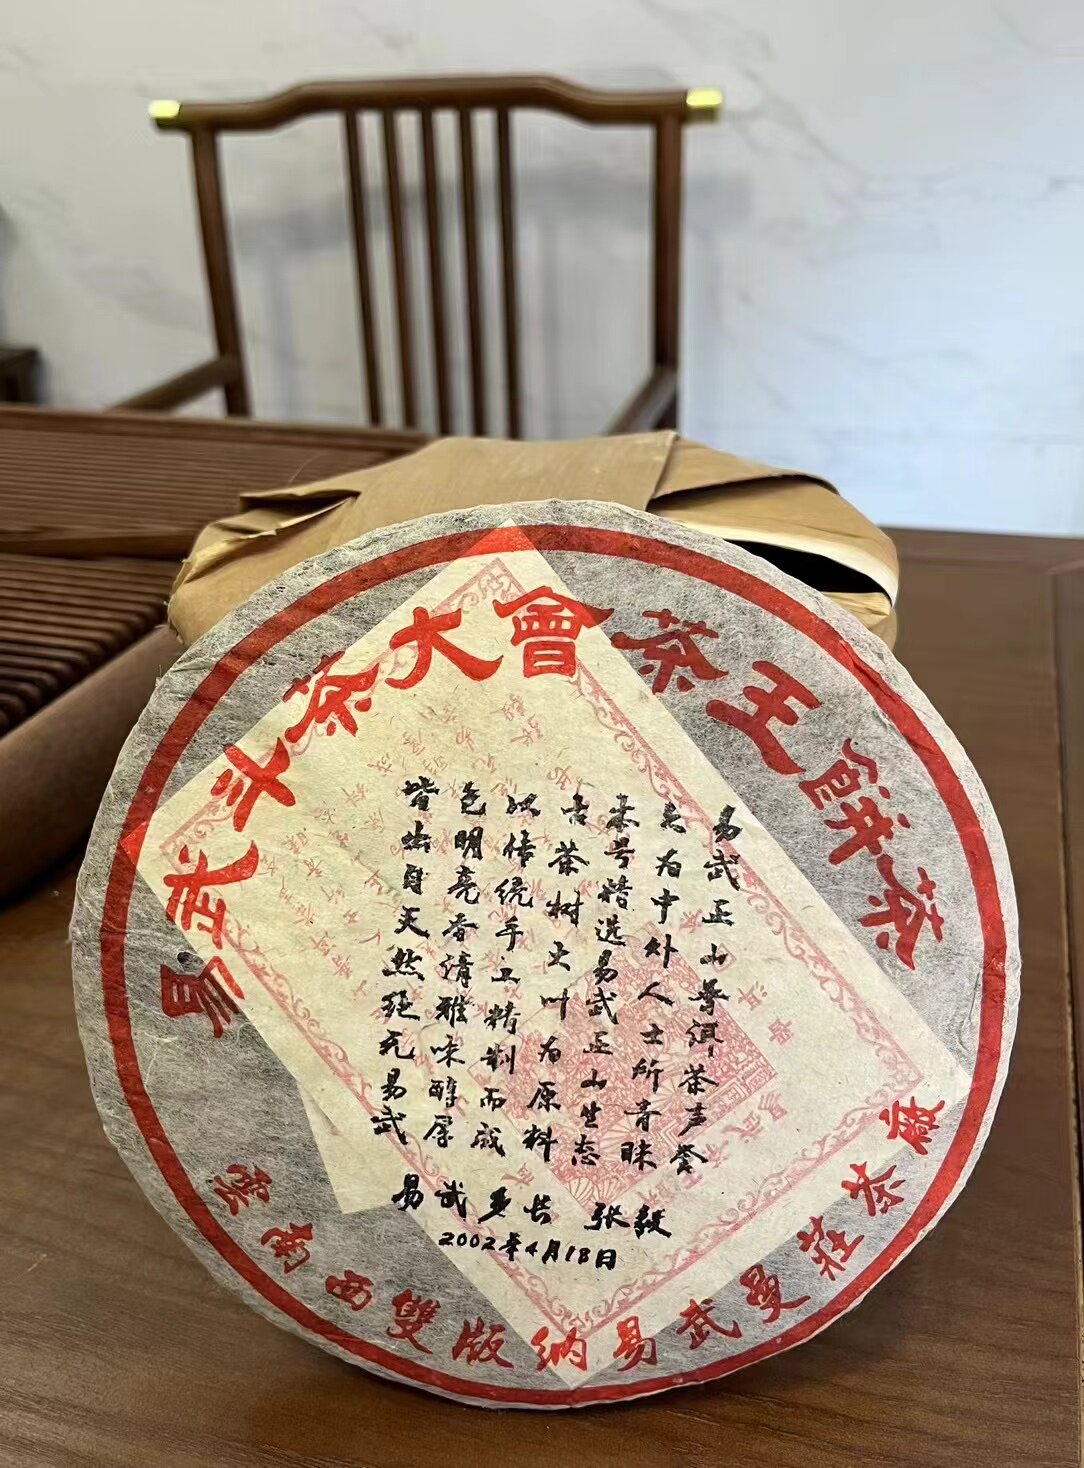 易武斗茶大會茶王餅茶
易武正山普洱茶声誉
久为中外人士所青睐
本号精选易武正山生态
古茶树大叶为原料
以传统手工精制而成
色明亮香清雅味醇厚
皆出自天然绝无易武
易武乡长 张毅
2002年4月18日
雲南西雙版納易武曼莊茶廠